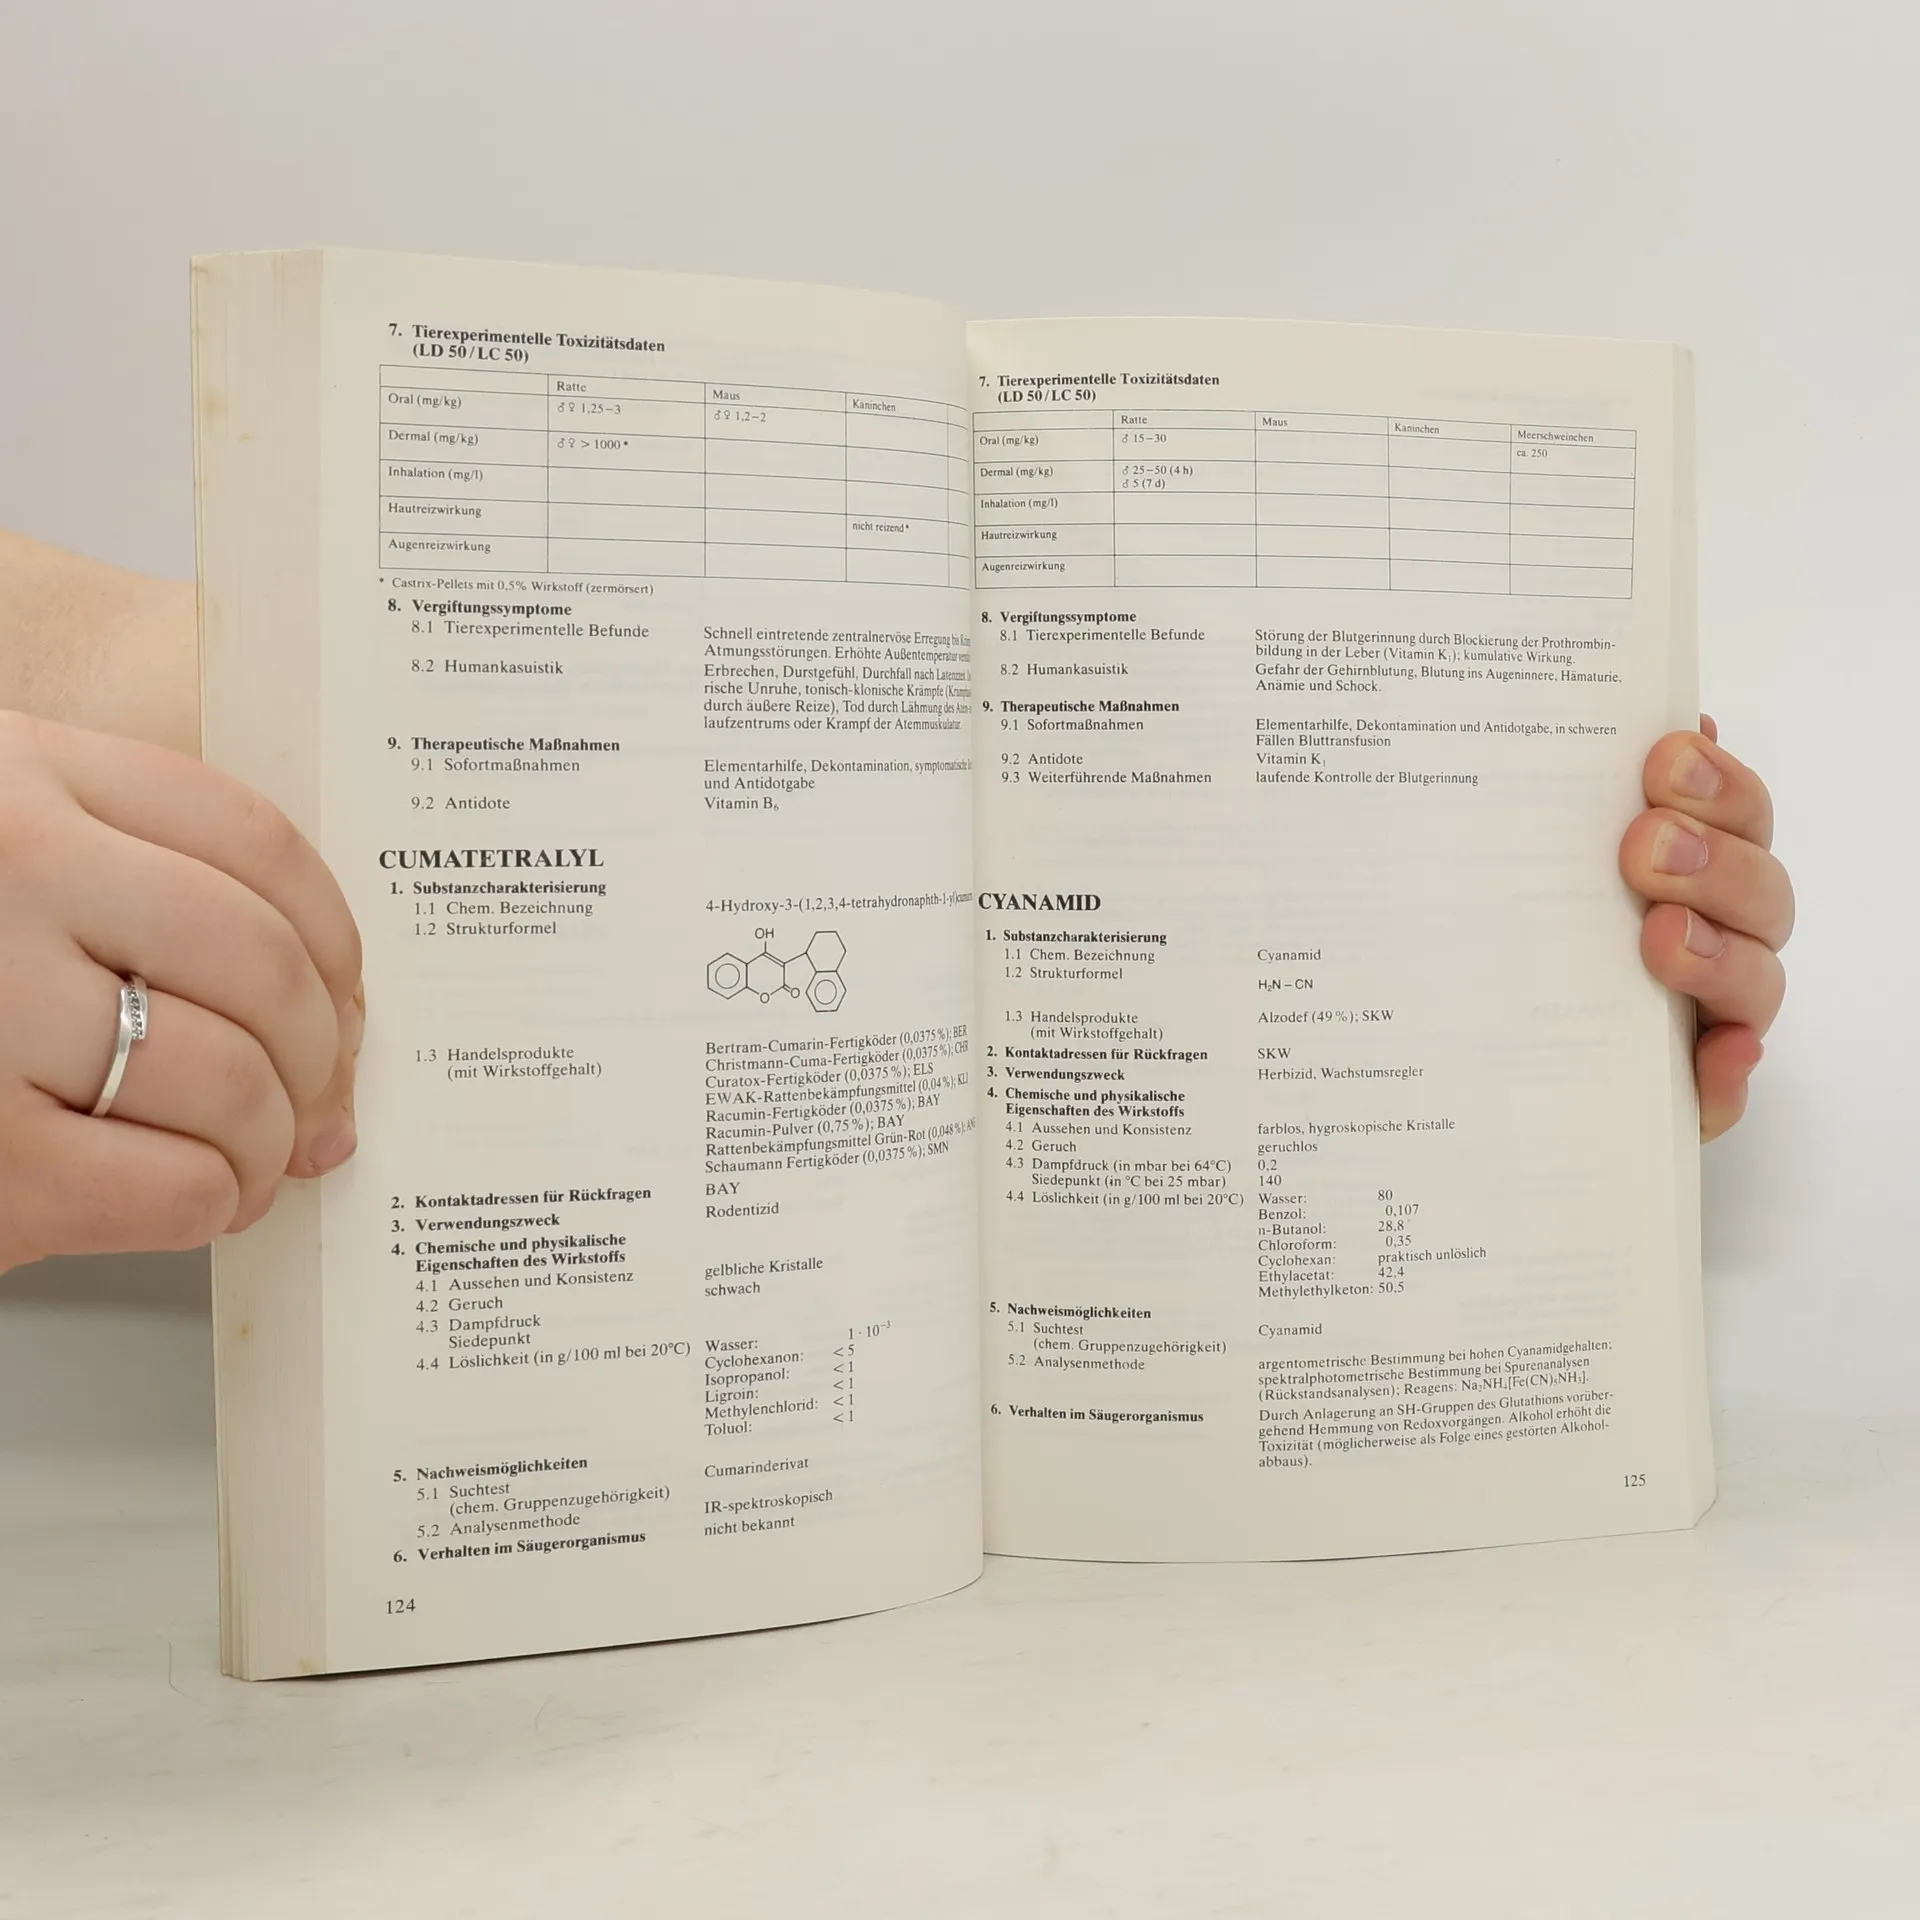 7. Tierexperimentelle Toxizitätsdaten
(LD 50/LC 50)
Ratte Maus Kaninchen
Oral (mg/kg) ♂♀ 1,25–3 ♂♀ 1,2–2
Dermal (mg/kg) ♂♀ > 1000*
Inhalation (mg/l)
Hautreizwirkung nicht reizend*
Augenreizwirkung
* Castrix-Pellets mit 0,5% Wirkstoff (zermörsert)
8. Vergiftungssymptome
8.1 Tierexperimentelle Befunde Schnell eintretende zentralnervöse Erregung bis
Atmungsstörungen. Erhöhte Außentemperatur
8.2 Humankasuistik Erbrechen, Durstgefühl, Durchfall nach Latenzzeit
rische Unruhe, tonisch-klonische Krämpfe
durch äußere Reize), Tod durch Lähmung des
laufzentrums oder Krampf der Atemmuskulatur.
9. Therapeutische Maßnahmen
9.1 Sofortmaßnahmen Elementarhilfe, Dekontamination, symptomatische
und Antidotgabe
9.2 Antidote Vitamin B₆
CUMATETRALYL
1. Substanzcharakterisierung
1.1 Chem. Bezeichnung 4-Hydroxy-3-(1,2,3,4-tetrahydronaphth-1-yl)
1.2 Strukturformel
OH
O O
1.3 Handelsprodukte Bertram-Cumarin-Fertigköder (0,0375%); BER
(mit Wirkstoffgehalt) Christmann-Cuma-Fertigköder (0,0375%); CHR
Curatox-Fertigköder (0,0375%); ELS
EWAK-Rattenbekämpfungsmittel (0,04%);
Racumin-Fertigköder (0,0375%); BAY
Racumin-Pulver (0,75%); BAY
Rattenbekämpfungsmittel Grün-Rot (0,048%);
Schaumann Fertigköder (0,0375%); SMN
2. Kontaktadressen für Rückfragen BAY
3. Verwendungszweck Rodentizid
4. Chemische und physikalische
Eigenschaften des Wirkstoffs
4.1 Aussehen und Konsistenz gelbliche Kristalle
4.2 Geruch schwach
4.3 Dampfdruck
Siedepunkt
4.4 Löslichkeit (in g/100 ml bei 20°C) Wasser: 1 · 10⁻³
Cyclohexanon: < 5
Isopropanol: < 1
Ligroin: < 1
Methylenchlorid: < 1
Toluol: < 1
5. Nachweismöglichkeiten
5.1 Suchtest Cumarinderivat
(chem. Gruppenzugehörigkeit)
5.2 Analysenmethode IR-spektroskopisch
6. Verhalten im Säugerorganismus nicht bekannt
124
7. Tierexperimentelle Toxizitätsdaten
(LD 50/LC 50)
Ratte Maus Kaninchen Meerschweinchen
Oral (mg/kg) ♂ 15–30 ca. 250
Dermal (mg/kg) ♂ 25–50 (4 h)
♂ 5 (7 d)
Inhalation (mg/l)
Hautreizwirkung
Augenreizwirkung
8. Vergiftungssymptome
8.1 Tierexperimentelle Befunde Störung der Blutgerinnung durch Blockierung der Prothrombin-
bildung in der Leber (Vitamin K₁); kumulative Wirkung.
8.2 Humankasuistik Gefahr der Gehirnblutung, Blutung ins Augeninnere, Hämaturie,
Anämie und Schock.
9. Therapeutische Maßnahmen
9.1 Sofortmaßnahmen Elementarhilfe, Dekontamination und Antidotgabe, in schweren
Fällen Bluttransfusion
9.2 Antidote Vitamin K₁
9.3 Weiterführende Maßnahmen laufende Kontrolle der Blutgerinnung
CYANAMID
1. Substanzcharakterisierung
1.1 Chem. Bezeichnung Cyanamid
1.2 Strukturformel
H₂N – CN
1.3 Handelsprodukte Alzodef (49%); SKW
(mit Wirkstoffgehalt)
2. Kontaktadressen für Rückfragen SKW
3. Verwendungszweck Herbizid, Wachstumsregler
4. Chemische und physikalische
Eigenschaften des Wirkstoffs
4.1 Aussehen und Konsistenz farblos, hygroskopische Kristalle
4.2 Geruch geruchlos
4.3 Dampfdruck (in mbar bei 64°C) 0,2
Siedepunkt (in °C bei 25 mbar) 140
4.4 Löslichkeit (in g/100 ml bei 20°C) Wasser: 80
Benzol: 0,107
n-Butanol: 28,8
Chloroform: 0,35
Cyclohexan: praktisch unlöslich
Ethylacetat: 42,4
Methylethylketon: 50,5
5. Nachweismöglichkeiten
5.1 Suchtest Cyanamid
(chem. Gruppenzugehörigkeit)
5.2 Analysenmethode argentometrische Bestimmung bei hohen Cyanamidgehalten;
spektralphotometrische Bestimmung bei Spurenanalysen
(Rückstandsanalysen); Reagens: Na₂NH₄[Fe(CN)₅NH₃].
6. Verhalten im Säugerorganismus Durch Anlagerung an SH-Gruppen des Glutathions vorüber-
gehend Hemmung von Redoxvorgängen. Alkohol erhöht die
Toxizität (möglicherweise als Folge eines gestörten Alkohol-
abbaus).
125